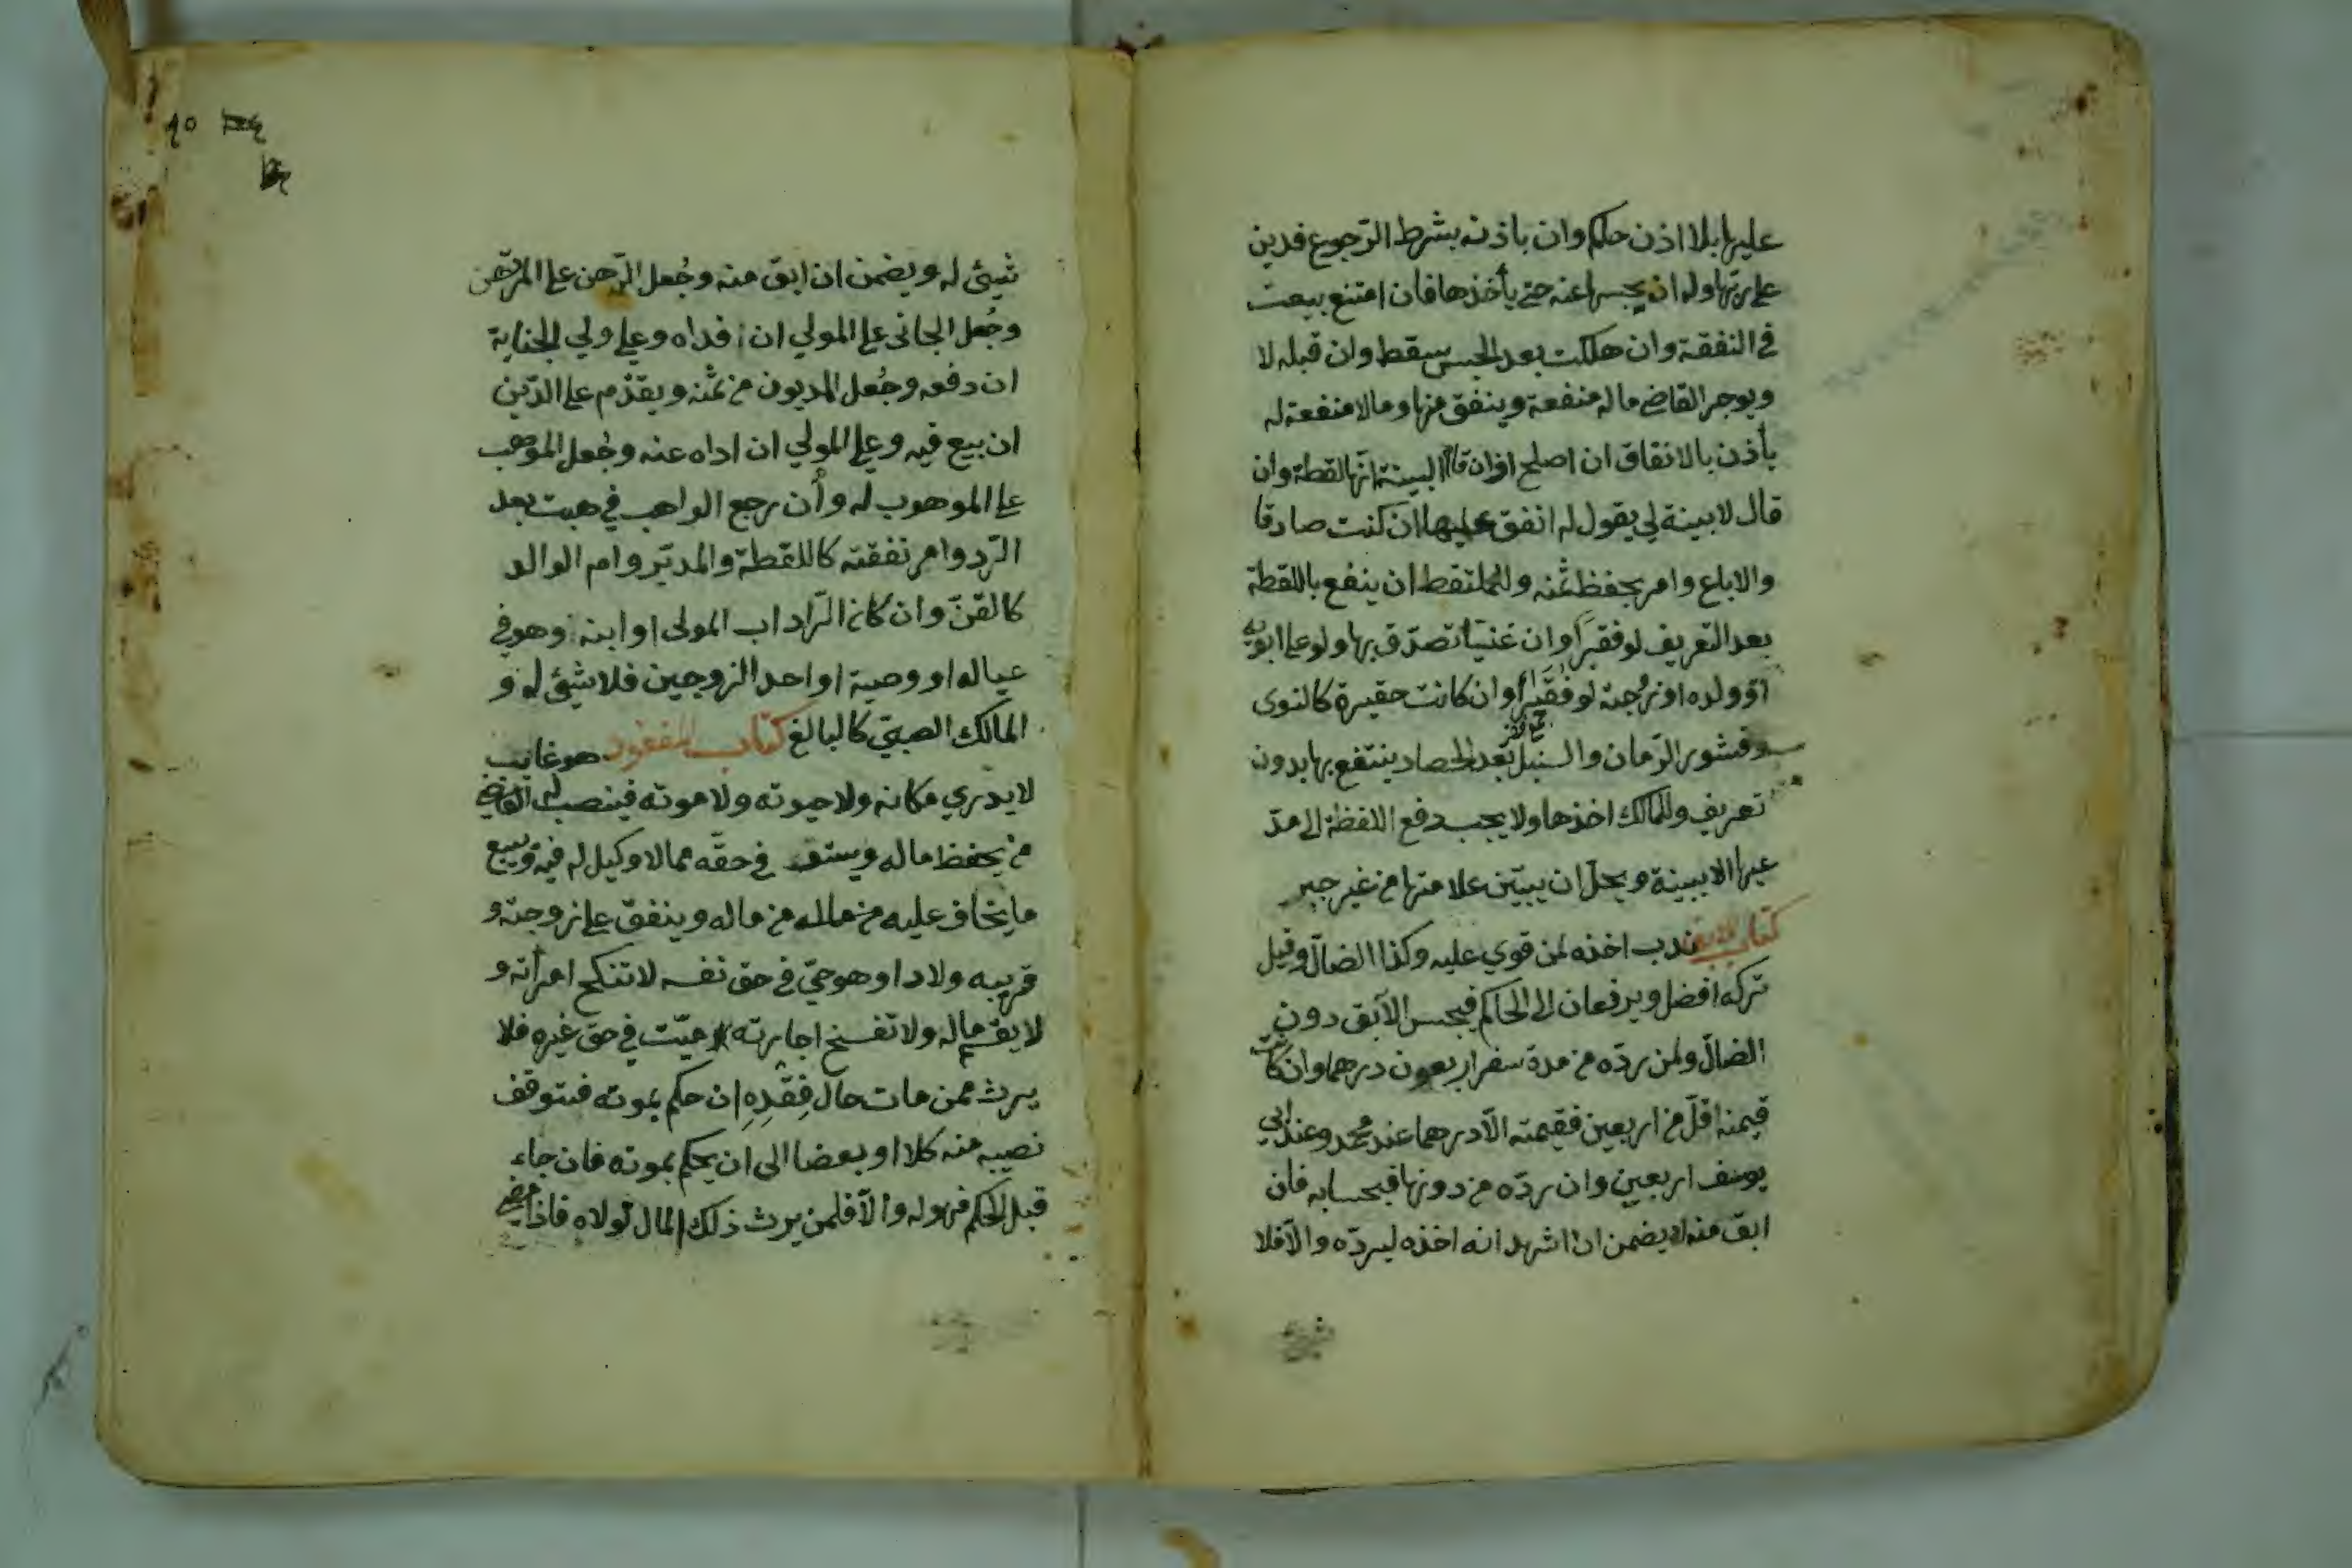 عليها بلا اذن حاكم وان باذنه بشرط الرّجوع فدين
على ربّها وله ان يحبسها عنه حتى يأخذها فان امتنع بيعت
في النفقة وان هلكت بعد الحبس سقط وان قبله لا
ويوجر القاضي ماله منفعة وينفق منها ومالا منفعة له
يأذن بالانفاق ان اصلح اوان قام البينة انّها لقطة وان
قال لابينة لي يقول له انفق عليها ان كنت صادقا
والاباع وامر بحفظ ثمنه وللملتقط ان ينفع باللقطة
بعد التعريف لو فقيرًا وان غنيّا تصدّق بها ولو على ابويه
او ولده او زوجته لو فقيرًا وان كانت حقيرة كالنوى
وقشور الرّمان والسنبل بعد الحصاد ينتفع بها بدون
تعريف وللمالك اخذها ولا يجب دفع اللقطة الى مدّ
عيها الا ببينة ويحلّ ان يبيّن علامتها من غير جبر
كتاب الابق ندب اخذه لمن قوي عليه وكذا الضالّ وقيل
تركه افضل ويرفعان الى الحاكم فيحبس الآبق دون
الضالّ ولمن ردّه من مدة سفر اربعون درهما وان كانت
قيمته اقلّ من اربعين فقيمته الّا درهما عند محمد وعند ابي
يوسف اربعين وان ردّه من دونها فبحسابه فان
ابق منه لا يضمن ان اشهد انه اخذه ليردّه والّا فلا
٩٥
شيئ له ويضمن ان ابق منه وجُعل الرّهن على المرتهن
وجُعل الجاني على المولي ان افداه وعلى ولي الجناية
ان دفعه وجُعل المديون من ثمنه ويقدّم على الدّين
ان بيع فيه وعلى المولي ان اداه عنه وجُعل الموهب
على الموهوب له وأن رجع الواهب في هبته بعد
الرّد وامر نفقته كاللقطة والمدبّر وام الوالد
كالقنّ وان كان الرّاد اب المولى او ابنه وهو في
عياله او وصية او احد الزوجين فلا شيئ له و
المالك الصبيّ كالبالغ كتاب المفقود هو غايب
لا يدري مكانه ولا حيوته ولا موته فينصب له القاضي
من يحفظ ماله ويستوفي في حقّه ممالا وكيل له فيه ويبيع
ما يخاف عليه من ماله وينفق على زوجته و
قريبه ولادا وهو حيّ في حق نفسه لا تنكح امرأته و
لا يقسم ماله ولا تفسخ اجارته ميّت في حق غيره فلا
يرث ممن مات حال فقده ان حكم بموته فيتوقف
نصيبه منه كلا او بعضا الى ان يحكم بموته فان جاء
قبل الحكم فهو له والّا فلمن يرث ذلك المال لولاه فاذا مضى